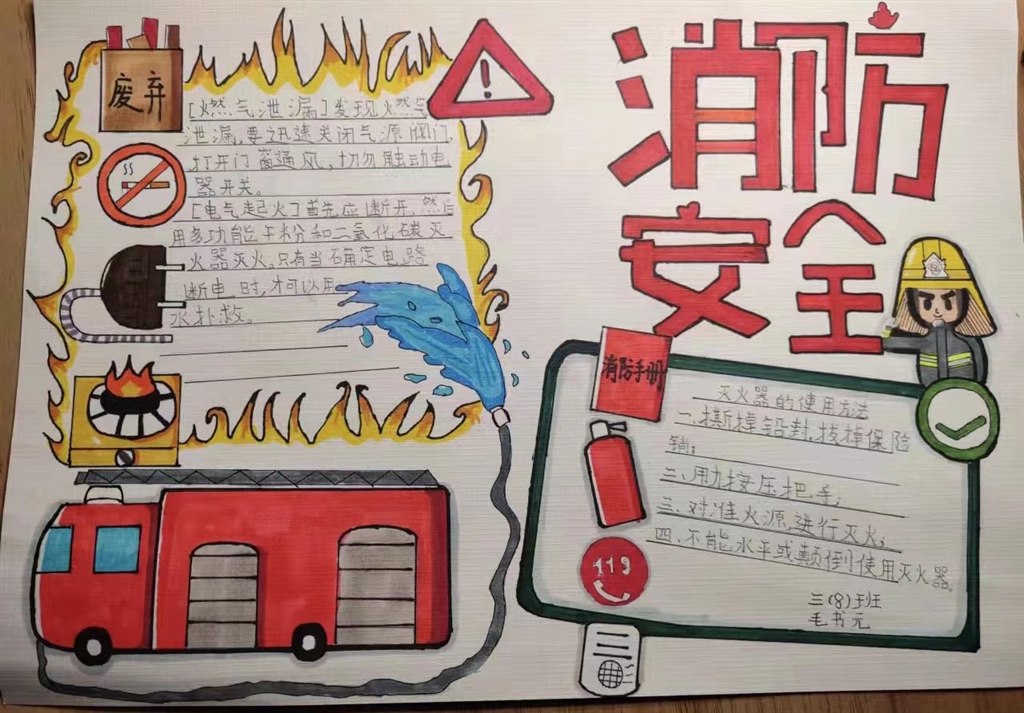 消防
安全
废弃
[燃气泄漏]发现燃气
泄漏,要迅速关闭气源阀门,
打开门窗通风,切勿触动电
器开关。
[电气起火]首先应断开,然后
用多功能干粉和二氧化碳灭
火器灭火。只有当确定电路
断电时,才可以用
水扑救。
消防手册
灭火器的使用方法
一.撕掉铅封,拔掉保险
销;
二.用力按压把手;
三.对准火源,进行灭火;
四.不能水平或颠倒使用灭火器。
119
三(8)班
毛书元